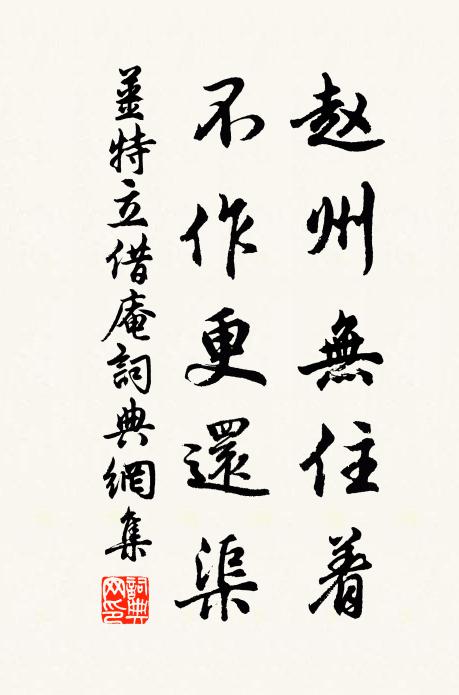 赵州無住着
不作更還渠
姜特立借庵詞典網集
詞典网印